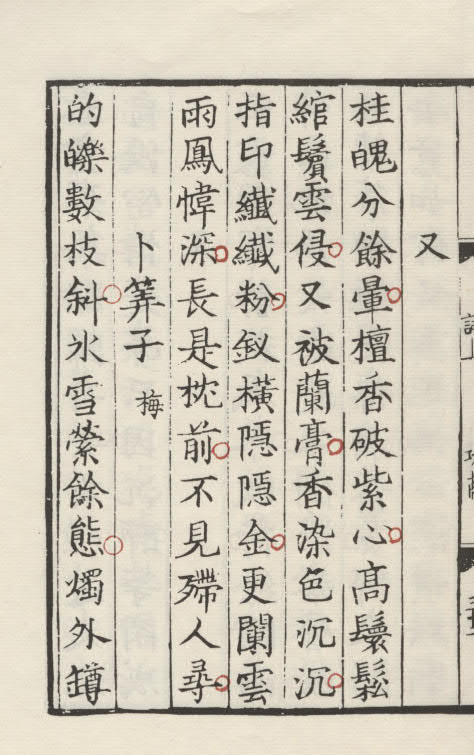 又
桂魄分餘暈檀香破紫心高鬟鬆
綰鬢雲侵又被蘭膏香染色沉沉
指印纖纖粉釵橫隱隱金更闌雲
雨鳳幃深長是枕前不見殢人尋
卜筭子 梅
的皪數枝斜氷雪縈餘態燭外罇